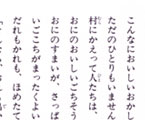 こんなにおいしいおかし
ただのひとりもいません
村にかえって人たちは、
おにのおいしいごちそう
おにのすまいが、さっぱ
いごこちがまったくよい
だれもかれも、ほめたて